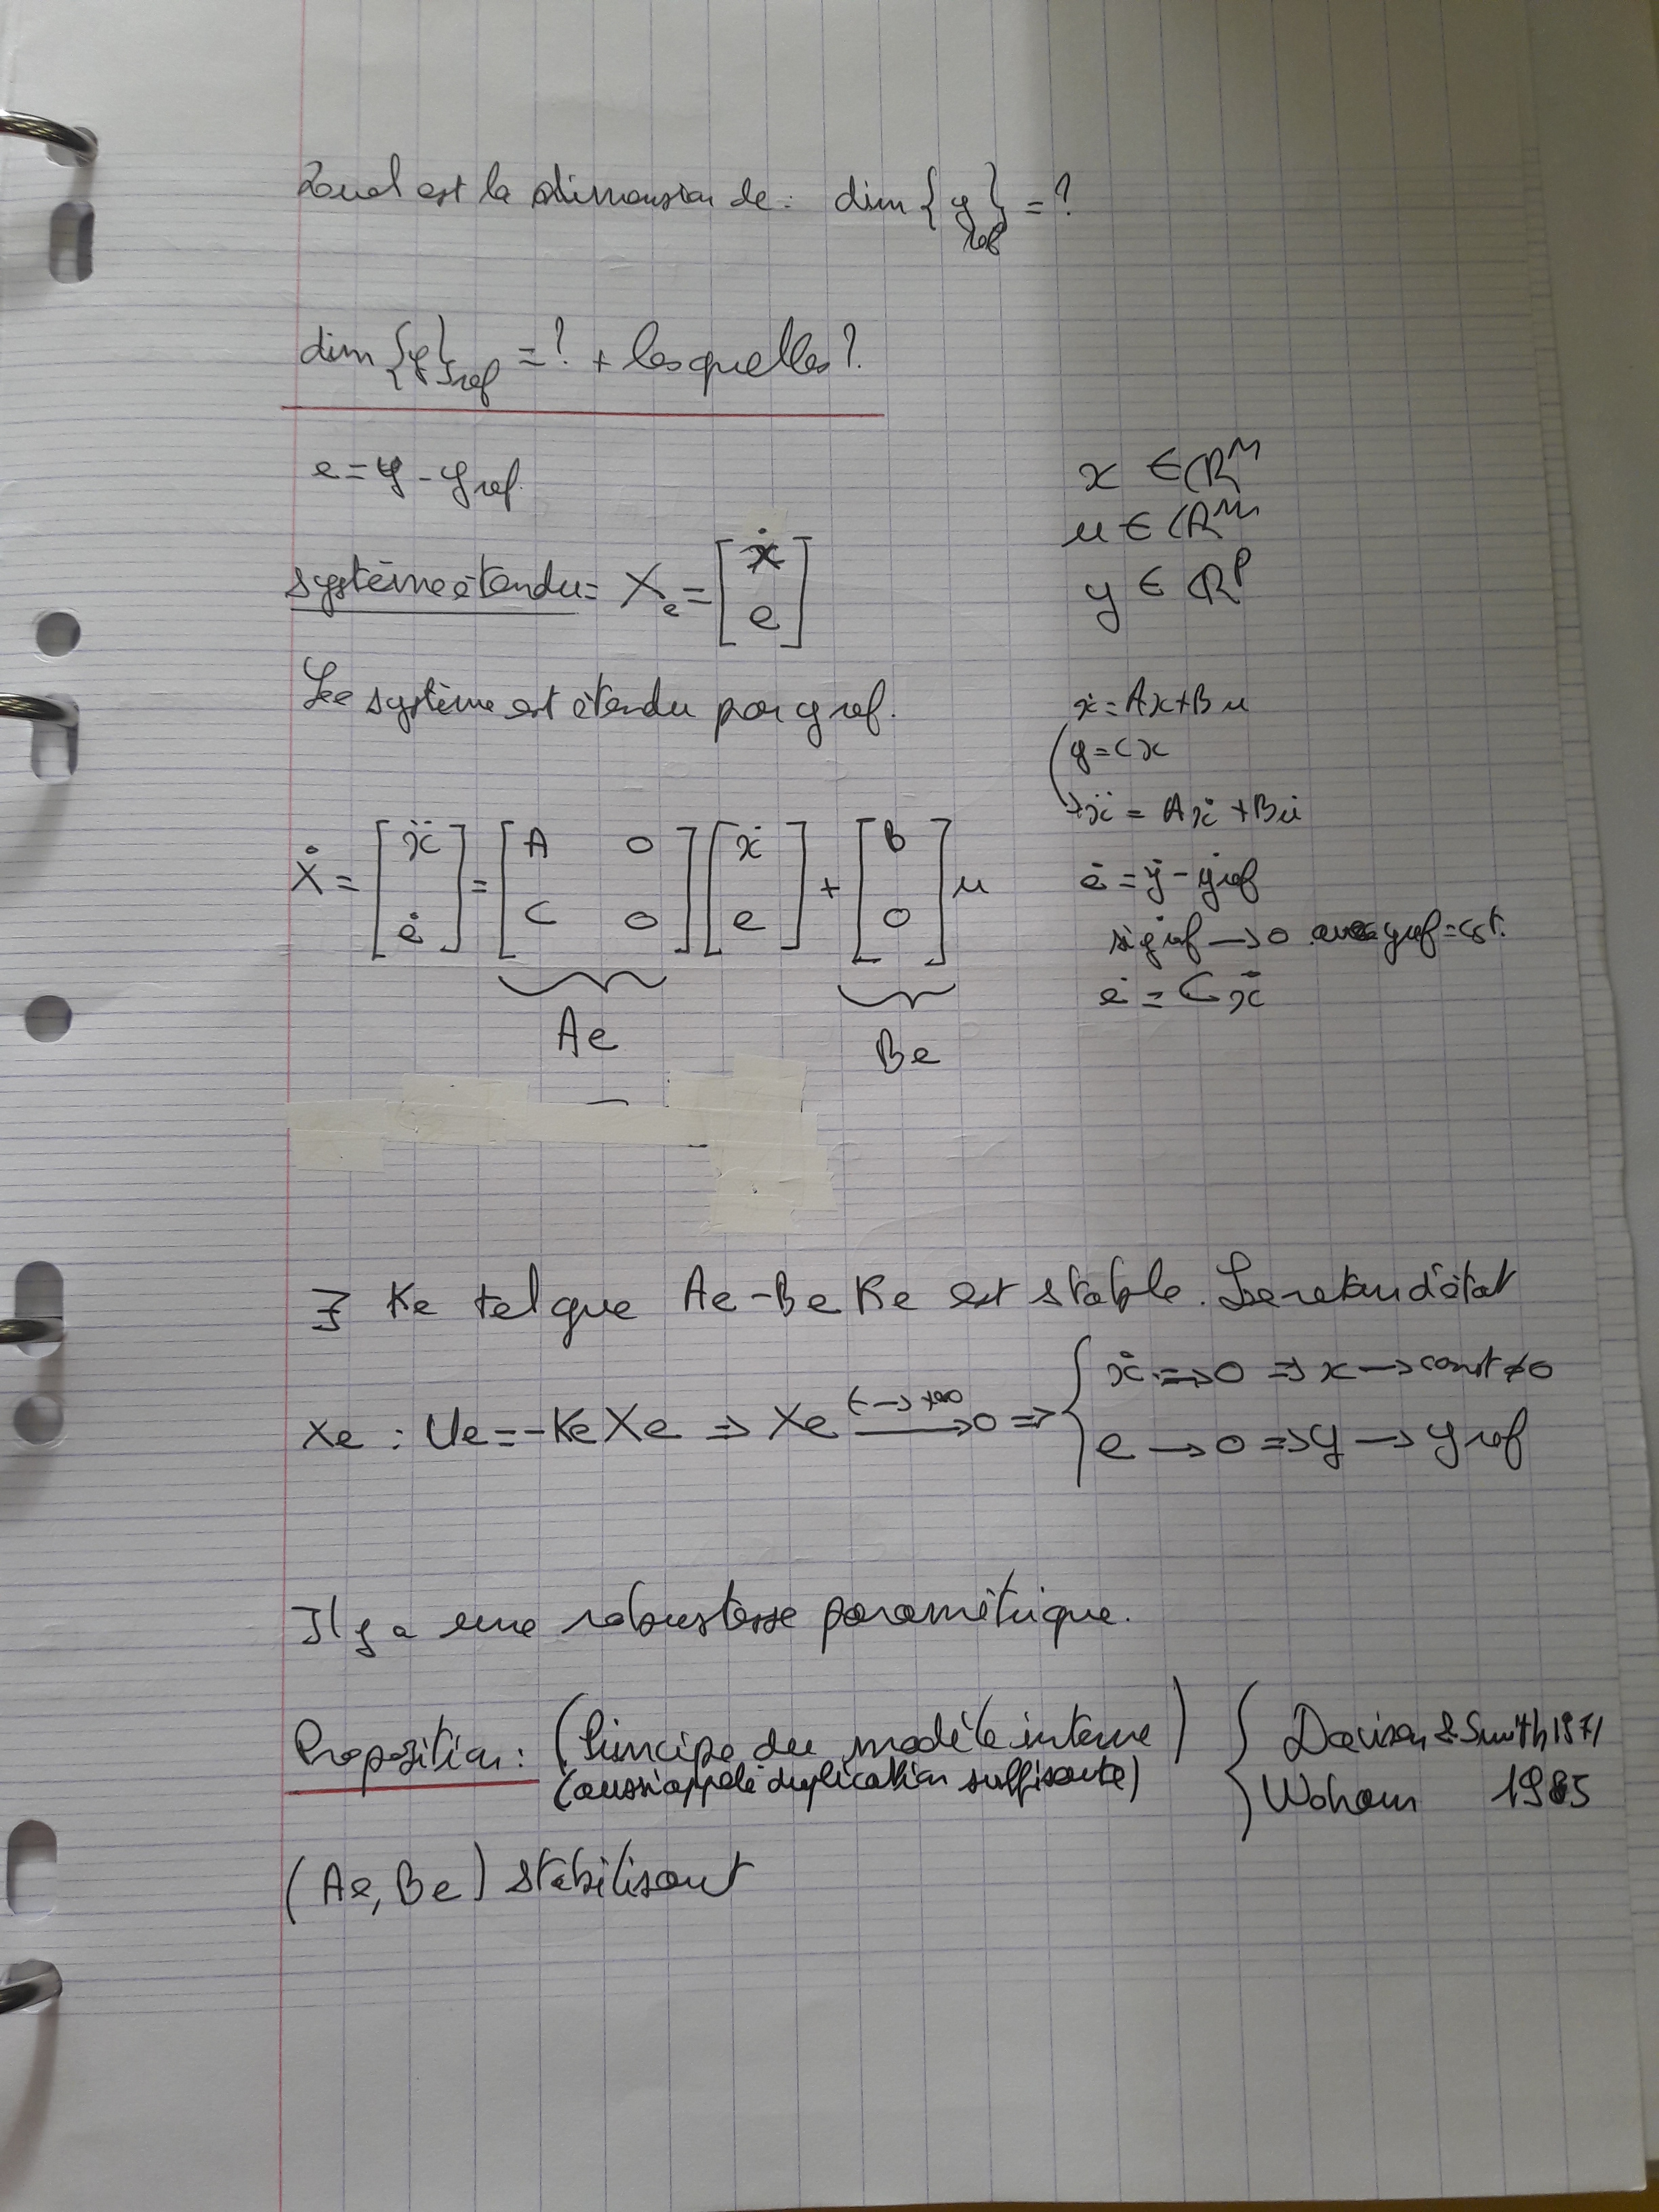 Quel est la dimension de : dim { y }ref = ?
dim { y }ref = ? + lesquelles ?
e = y - yref.
x ∈ ℝⁿ
u ∈ ℝᵐ
y ∈ ℝᵖ
système étendu = Xe = [ ẋ ; e ]
Le système est étendu par yref.
ẋ = Ax + Bu
y = Cx
→ ẍ = Aẋ + Bu̇
ė = ẏ - ẏref
si ẏref → 0 avec yref = cst.
ė = Cẋ
Ẋ = [ ẍ ; ė ] = [ A 0 ; C 0 ] [ ẋ ; e ] + [ B ; 0 ] u
Ae Be
∃ Ke tel que Ae - Be Ke est stable. Le retour d'état
Xe : Ue = -Ke Xe ⇒ Xe →(t → +∞) 0 ⇒ { ẋ → 0 ⇒ x → const ≠ 0
e → 0 ⇒ y → yref
Il y a une robustesse paramétrique.
Proposition : (Principe du modèle interne) { Davison & Smith 1971
(aussi appelé duplication suffisante) Wonham 1985
(Ae, Be) stabilisant